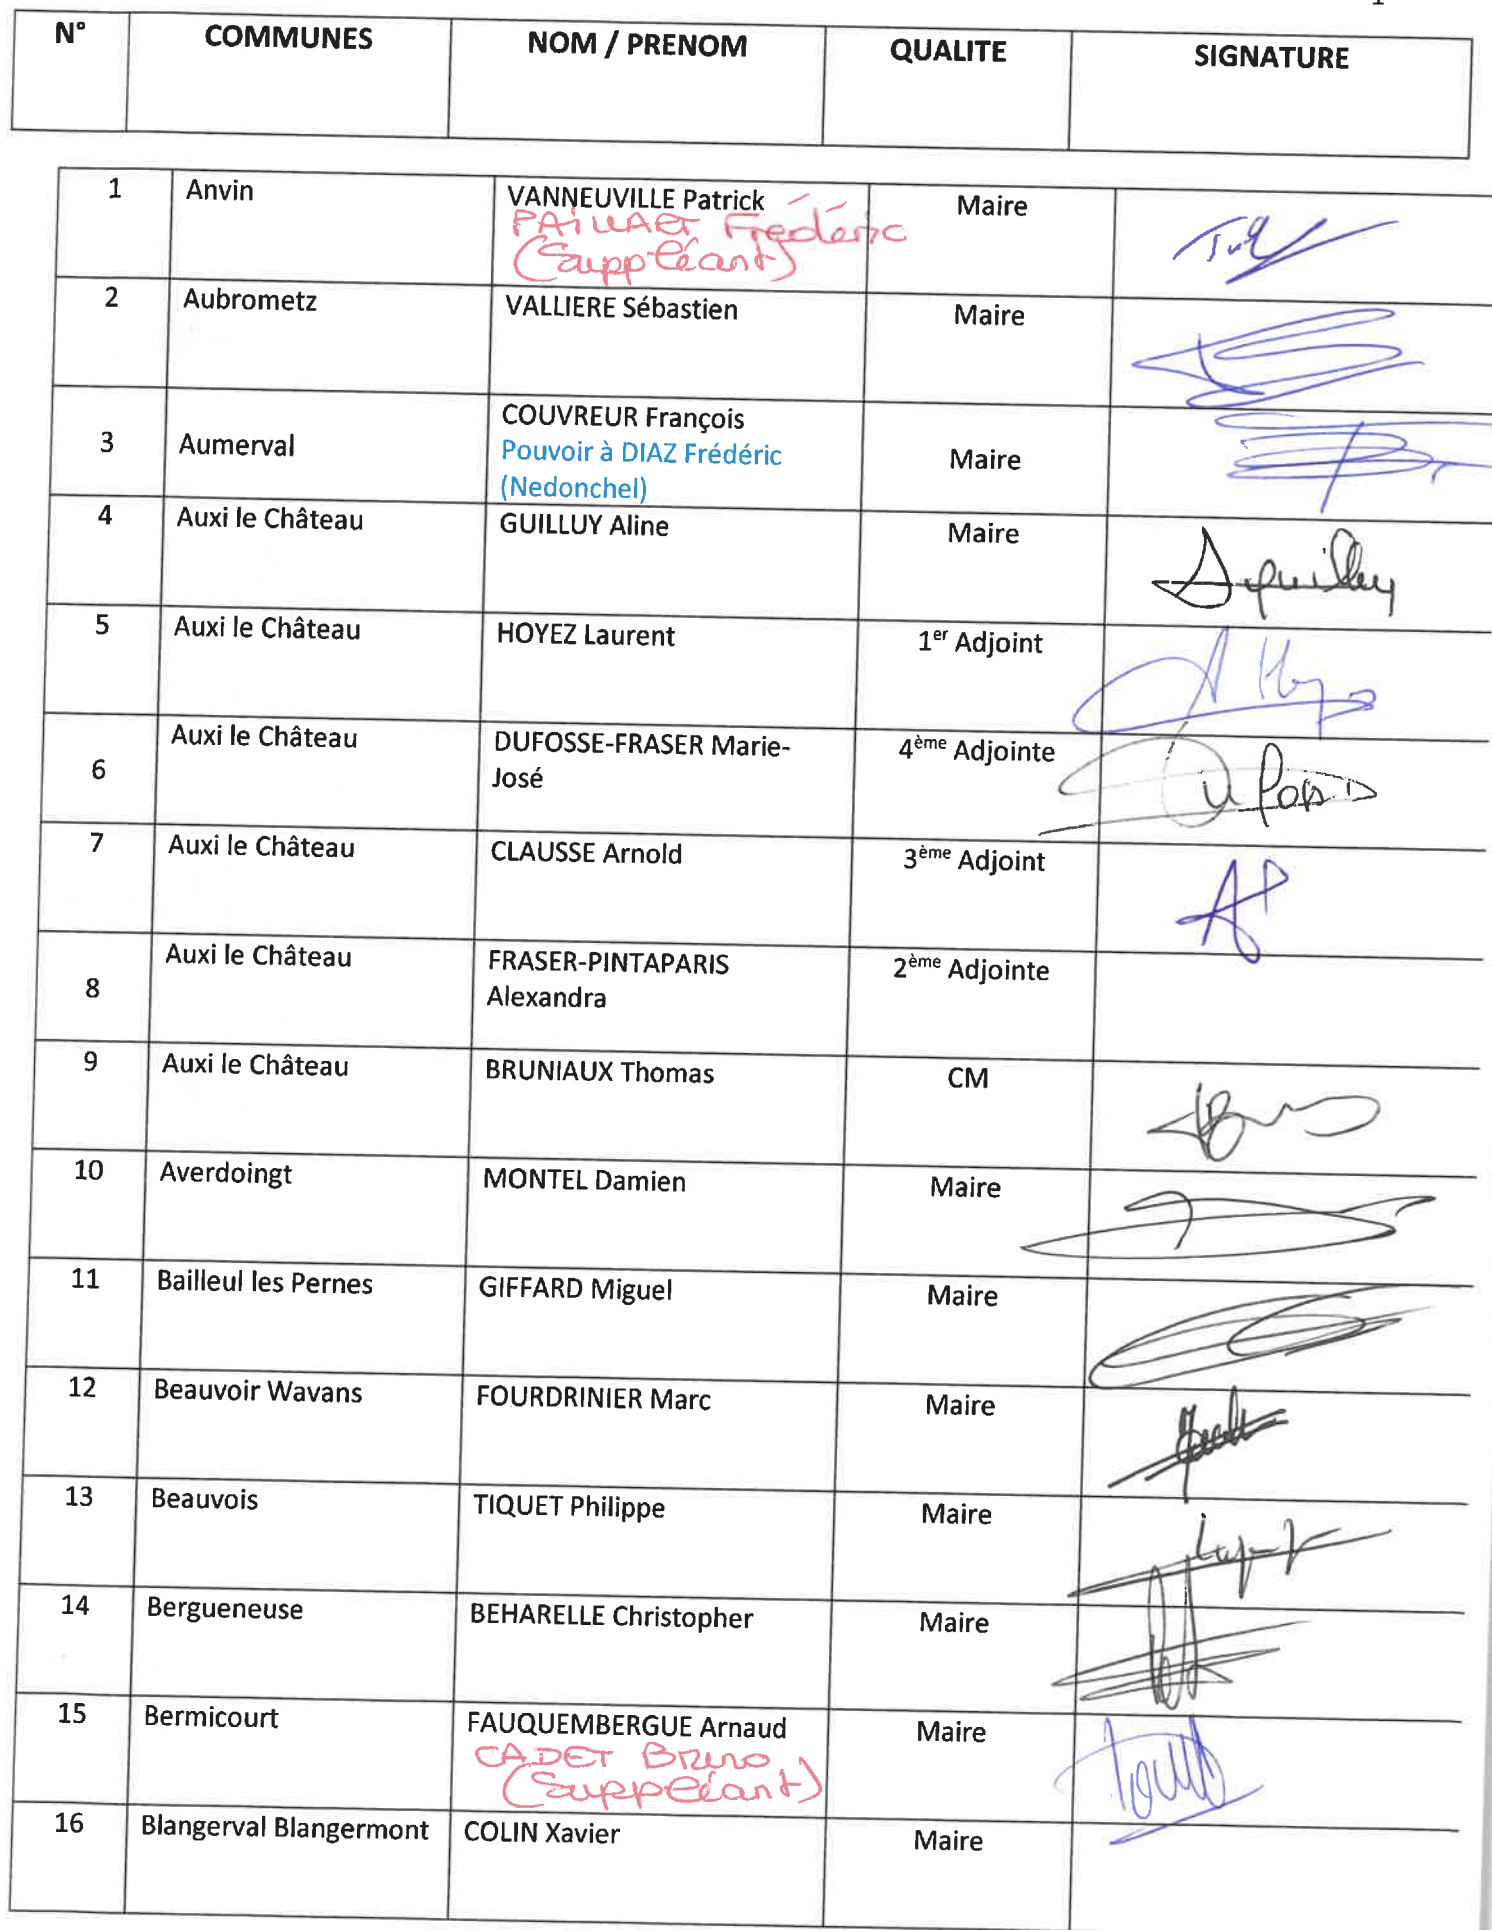 1
N° COMMUNES NOM / PRENOM QUALITE SIGNATURE
1 Anvin VANNEUVILLE Patrick Maire
PAILLART Frédéric
(Suppléant)
2 Aubrometz VALLIERE Sébastien Maire
COUVREUR François
3 Aumerval Pouvoir à DIAZ Frédéric Maire
(Nedonchel)
4 Auxi le Château GUILLUY Aline Maire
5 Auxi le Château HOYEZ Laurent 1er Adjoint
6 Auxi le Château DUFOSSE-FRASER Marie- 4ème Adjointe
José
7 Auxi le Château CLAUSSE Arnold 3ème Adjoint
8 Auxi le Château FRASER-PINTAPARIS 2ème Adjointe
Alexandra
9 Auxi le Château BRUNIAUX Thomas CM
10 Averdoingt MONTEL Damien Maire
11 Bailleul les Pernes GIFFARD Miguel Maire
12 Beauvoir Wavans FOURDRINIER Marc Maire
13 Beauvois TIQUET Philippe Maire
14 Bergueneuse BEHARELLE Christopher Maire
15 Bermicourt FAUQUEMBERGUE Arnaud Maire
CADET Bruno
(Suppléant)
16 Blangerval Blangermont COLIN Xavier Maire